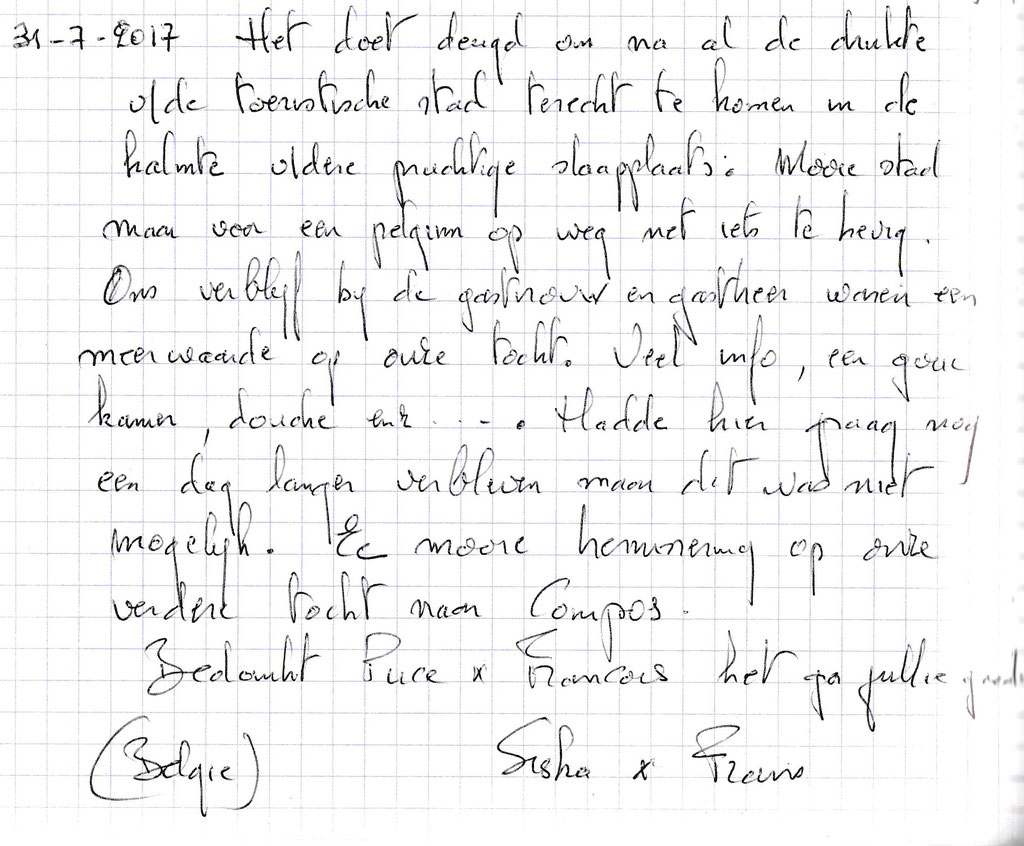 31-7-2017 Het doet deugd om na al de drukte
v/de toeristische stad terecht te komen in de
kalmte v/dere prachtige slaapplaats. Mooie stad
maar voor een pelgrim op weg net iets te hevig.
Ons verblijf bij de gastvrouw en gastheer waren een
meerwaarde op onze tocht. Veel info, een goeie
kamer, douche enz ..-. Hadde hier graag nog
een dag langer verbleven maar dit was niet
mogelijk. mooie herinnering op onze
verdere tocht naar Compos.
Bedankt Puce x Francois het ga jullie goed
(Belgie) Siska x Frans